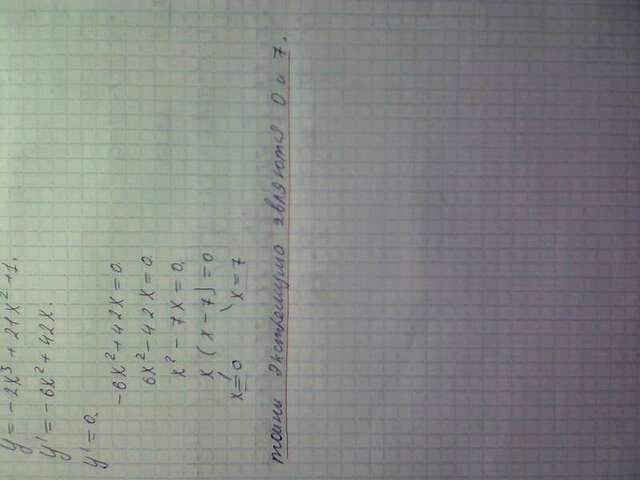 y = -2x³ + 21x² + 1.
y' = -6x² + 42x.
y' = 0.
-6x² + 42x = 0.
6x² - 42x = 0.
x² - 7x = 0.
x (x - 7) = 0
x = 0 x = 7
точки экстремума являются 0 и 7.